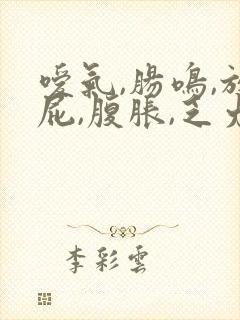 噯氣,腸鳴,放
屁,腹脹,乏
李彩雲